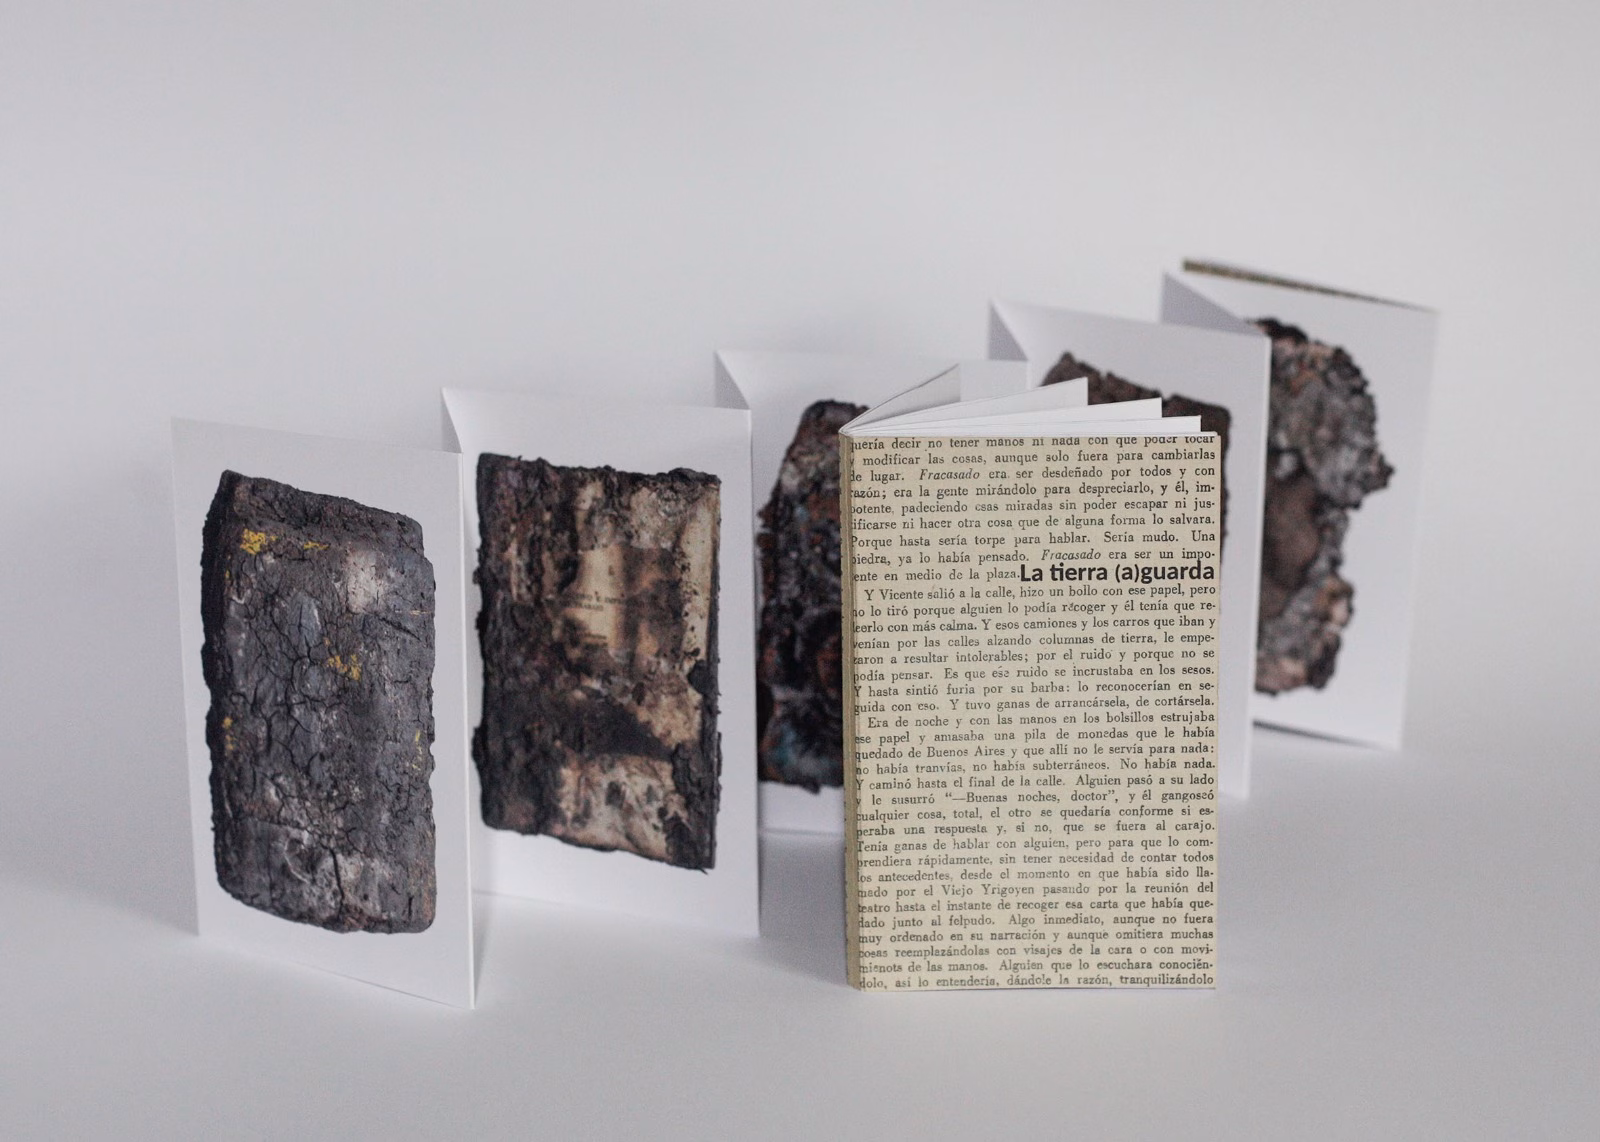 quería decir no tener manos ni nada con que poder tocar
y modificar las cosas, aunque solo fuera para cambiarlas
de lugar. Fracasado era ser desdeñado por todos y con
razón; era la gente mirándolo para despreciarlo, y él, im-
potente, padeciendo esas miradas sin poder escapar ni jus-
tificarse ni hacer otra cosa que de alguna forma lo salvara.
Porque hasta sería torpe para hablar. Sería mudo. Una
piedra, ya lo había pensado. Fracasado era ser un impo-
tente en medio de la plaza.
La tierra (a)guarda
Y Vicente salió a la calle, hizo un bollo con ese papel, pero
no lo tiró porque alguien lo podía recoger y él tenía que re-
leerlo con más calma. Y esos camiones y los carros que iban y
venían por las calles alzando columnas de tierra, le empe-
zaron a resultar intolerables; por el ruido y porque no se
podía pensar. Es que ese ruido se incrustaba en los sesos.
Y hasta sintió furia por su barba: lo reconocerían en se-
guida con eso. Y tuvo ganas de arrancársela, de cortársela.
Era de noche y con las manos en los bolsillos estrujaba
ese papel y amasaba una pila de monedas que le había
quedado de Buenos Aires y que allí no le servía para nada:
no había tranvías, no había subterráneos. No había nada.
Y caminó hasta el final de la calle. Alguien pasó a su lado
y le susurró “—Buenas noches, doctor”, y él gangoseó
cualquier cosa, total, el otro se quedaría conforme si es-
peraba una respuesta y, si no, que se fuera al carajo.
Tenía ganas de hablar con alguien, pero para que lo com-
prendiera rápidamente, sin tener necesidad de contar todos
los antecedentes, desde el momento en que había sido lla-
mado por el Viejo Yrigoyen pasando por la reunión del
teatro hasta el instante de recoger esa carta que había que-
dado junto al felpudo. Algo inmediato, aunque no fuera
muy ordenado en su narración y aunque omitiera muchas
cosas reemplazándolas con visajes de la cara o con movi-
mienots de las manos. Alguien que lo escuchara conocién-
dolo, así lo entendería, dándole la razón, tranquilizándolo